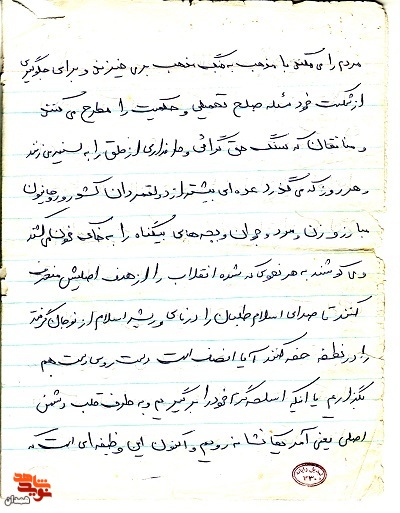 مردم را می کشند با مذهب به جنگ مذهب برمی خیزند و برای جلوگیری
از شکست خود مسئله صلح تحمیلی و حکمیت را مطرح می کنند
و منافقان که سنگ حق گرائی و طرفداری از خلق را به سینه می زنند
و هر روز که می گذرد عده ای بیشتر از دولتمردان کشور و روحانیون
مبارز و زن و مرد و جوان و بچه های بیگناه را به خاک و خون می کشند
و می کوشند به هر نحوی که شده انقلاب را از هدف اصلیش منحرف
کنند تا صدای اسلام طلبان را در نای و ریشه اسلام از نو جان گرفته
را در نطفه خفه کنند آیا انصاف است دست روی دست هم
بگذاریم یا آنکه اسلحه گرم خود را برگیریم و به طرف قلب دشمن
اصلی یعنی آمریکا نشانه رویم و اکنون این وظیفه ای است که
نوید شاهد
همدان